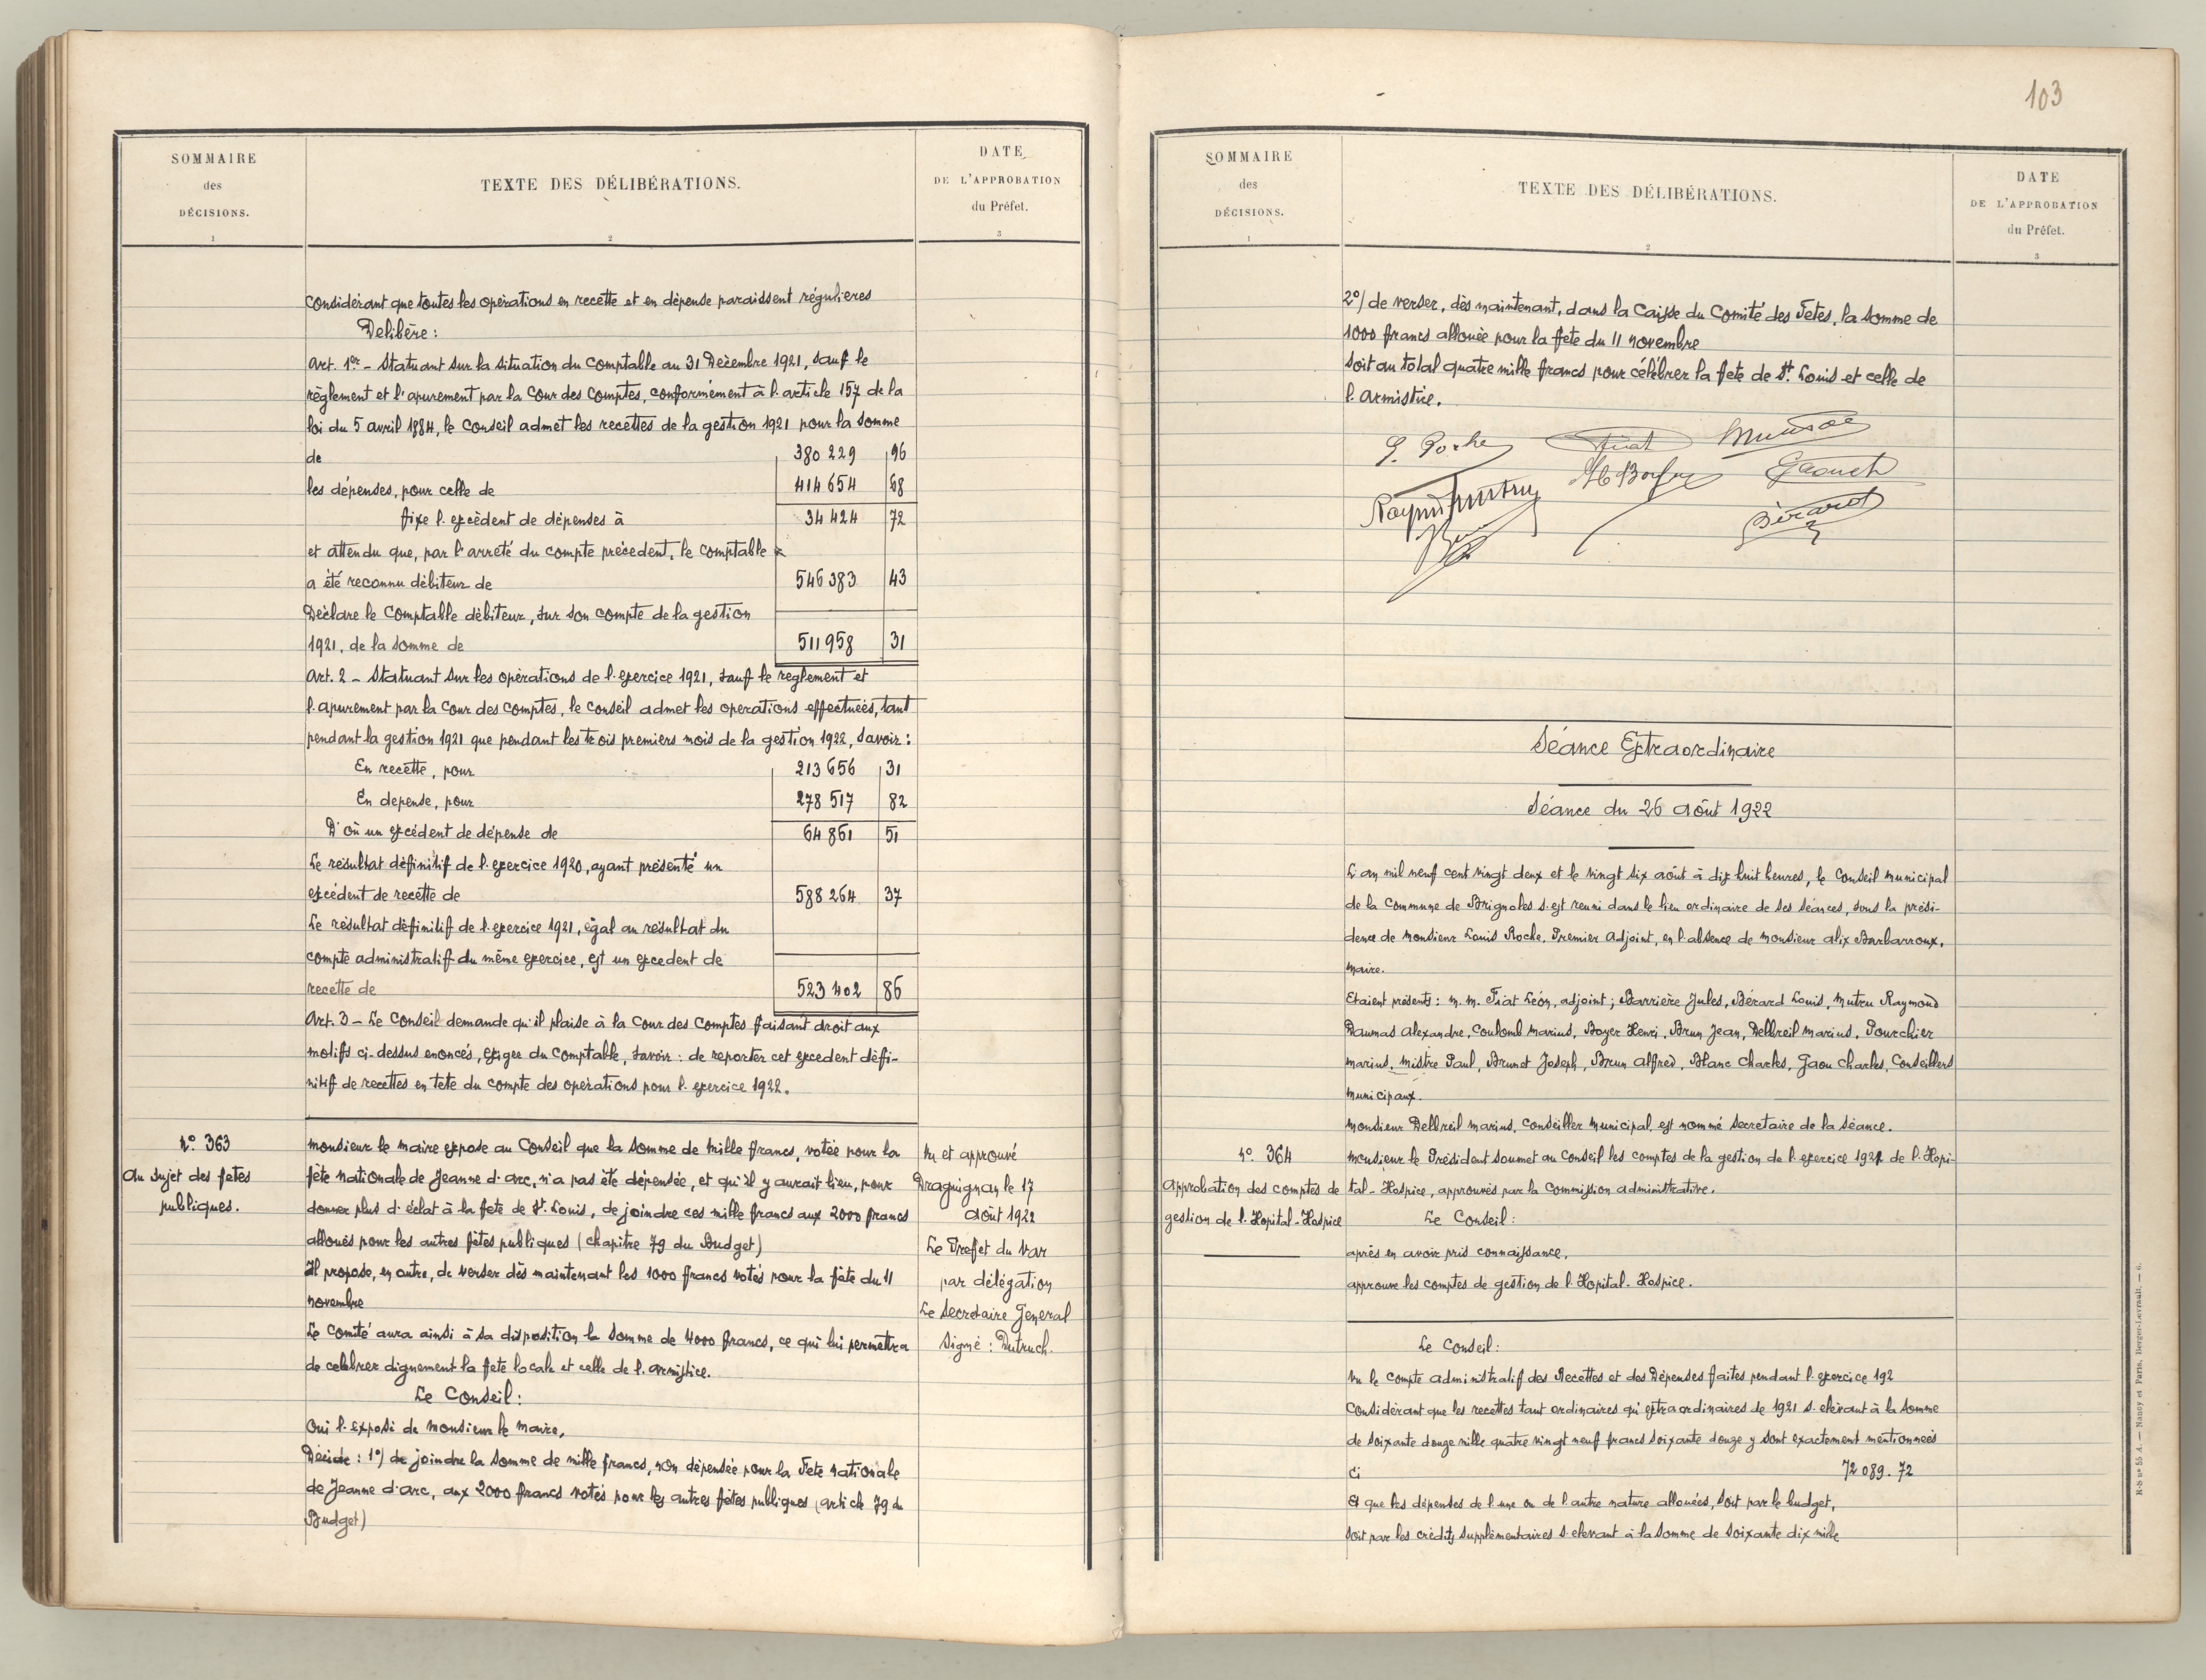 SOMMAIRE
des
DÉCISIONS.
1
TEXTE DES DÉLIBÉRATIONS.
2
DATE
DE L'APPROBATION
du Préfet.
3
Considérant que toutes les opérations en recette et en dépense paraissent régulieres
Delibère :
Art. 1er - Statuant sur la situation du comptable au 31 Décembre 1921, sauf le
règlement et l'apurement par la Cour des Comptes, conformément à l'article 157 de la
loi du 5 avril 1884, le Conseil admet les recettes de la gestion 1921 pour la somme
de 380 229 96
les dépenses, pour celle de 414 654 68
fixe l'excèdent de dépenses à 34 424 72
et attendu que, par l'arreté du compte précedent, le comptable
a été reconnu débiteur de 546 383 43
Déclare le Comptable débiteur, sur son compte de la gestion
1921, de la somme de 511 958 31
Art. 2 - Statuant sur les opérations de l'exercice 1921, sauf le reglement et
l'apurement par la Cour des comptes, le Conseil admet les operations effectuées, tant
pendant la gestion 1921 que pendant les trois premiers mois de la gestion 1922, savoir :
En recette, pour 213 656 31
En depense, pour 278 517 82
D'où un excédent de dépense de 64 861 51
Le resultat définitif de l'exercice 1920, ayant présenté un
excédent de recette de 588 264 37
Le résultat définitif de l'exercice 1921, égal au résultat du
compte administratif du même exercice, est un excedent de
recette de 523 402 86
Art. 3 - Le Conseil demande qu'il plaise à la Cour des Comptes faisant droit aux
motifs ci-dessus enoncés, exiger du comptable, savoir : de reporter cet excedent défi-
nitif de recettes en tete du compte des opérations pour l'exercice 1922.
N° 363
Au sujet des fetes
publiques.
Monsieur le Maire expose au Conseil que la somme de mille francs, votée pour la
fête nationale de Jeanne d'arc, n'a pas été dépensée, et qu'il y aurait lieu, pour
donner plus d'éclat à la fete de St. Louis, de joindre ces mille francs aux 2000 francs
alloués pour les autres fêtes publiques (chapitre 79 du Budget)
Il propose, en outre, de verser dès maintenant les 1000 francs votés pour la fête du 11
novembre
Le Comité aura ainsi à sa disposition la somme de 4000 francs, ce qui lui permettra
de celebrer dignement la fete locale et celle de l'armistice.
Le Conseil :
Oui l'exposé de Monsieur le Maire,
Décide : 1°/ de joindre la somme de mille francs, non dépensée pour la Fete nationale
de Jeanne d'arc, aux 2000 francs votés pour les autres fêtes publiques (article 79 du
Budget)
Vu et approuvé
Draguignan le 17
Août 1922
Le Prefet du Var
par délégation
Le Secretaire General
Signé : Dutruch.
103
SOMMAIRE
des
DÉCISIONS.
1
TEXTE DES DÉLIBÉRATIONS.
2
DATE
DE L'APPROBATION
du Préfet.
3
2°/ de verser, dès maintenant, dans la Caisse du Comité des Fetes, la somme de
1000 francs allouée pour la fete du 11 novembre
Soit au total quatre mille francs pour célébrer la fete de St. Louis et celle de
l'armistice.
Bérard
Séance Extraordinaire
Séance du 26 Août 1922
L'an mil neuf cent vingt deux et le vingt six août à dix huit heures, le Conseil Municipal
de la Commune de Brignoles s'est reuni dans le lieu ordinaire de ses séances, sous la prési-
dence de Monsieur Louis Roche, Premier Adjoint, en l'absence de Monsieur Alix Barbarroux,
Maire.
Etaient présents : M.M. Fiat Léon, adjoint ; Barrière Jules, Bérard Louis, Mutru Raymond
Daumas Alexandre, Coulomb Marius, Boyer Henri, Brun Jean, Delbreil Marius, Pourchier
Marius, Mistre Paul, Brunet Joseph, Brun Alfred, Blanc Charles, Gaou Charles, Conseillers
Municipaux.
Monsieur Delbreil Marius, Conseiller Municipal, est nommé Secretaire de la Séance.
N° 364
Approbation des comptes de
gestion de l'Hopital-Hospice
Monsieur le Président soumet au Conseil les comptes de la gestion de l'exercice 1921 de l'Hopi-
tal-Hospice, approuvés par la Commission administrative.
Le Conseil :
après en avoir pris connaissance,
approuve les comptes de gestion de l'Hopital-Hospice.
Le Conseil :
Vu le compte administratif des Recettes et des Dépenses faites pendant l'exercice 192
Considérant que les recettes tant ordinaires qu'extraordinaires de 1921 s'elevant à la somme
de soixante douze mille quatre vingt neuf francs soixante douze y sont exactement mentionnées
ci 72 089.72
Et que les dépenses de l'une ou de l'autre nature allouées, soit par le budget,
soit par les crédits supplémentaires s'elevant à la somme de soixante dix mille
R-S n° 55 A. — Nancy et Paris, Berger-Levrault. — 6.